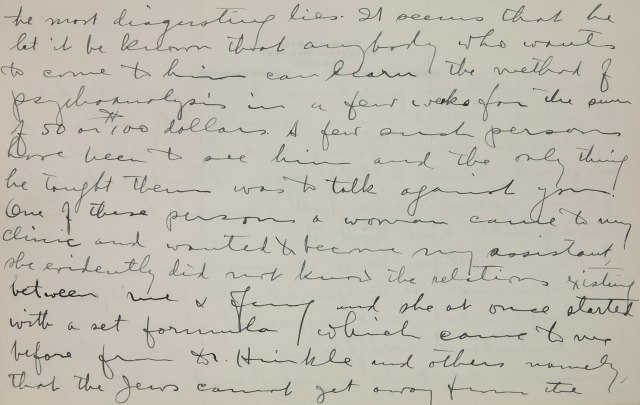 the most disgusting lies. It seems that he
let it be known that anybody who wants
to come to him can learn the method of
psychoanalysis in a few weeks for the sum
of 50 or #100 dollars. A few such persons
have been to see him and the only thing
he taught them was to talk against you.
One of these persons a woman came to my
clinic and wanted to become my assistant,
she evidently did not know the relations existing
between me & Jung and she at once started
with a set formula, which came to me
before from Dr. Hinkle and others namely,
that the Jews cannot get away from the